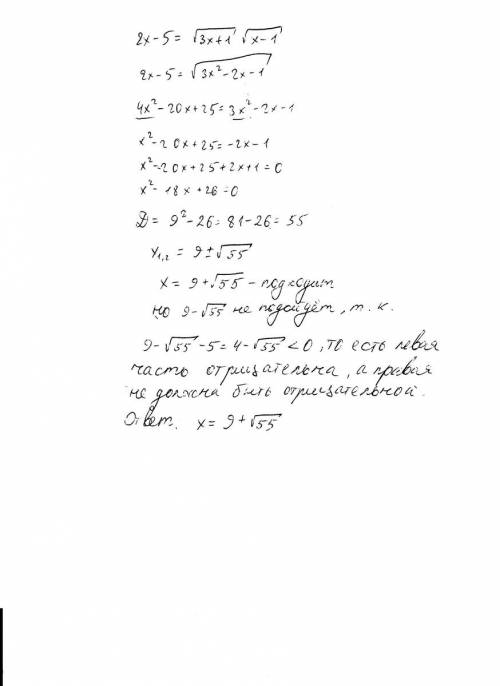 2x-5 = √(3x+1) √(x-1)
2x-5 = √(3x²-2x-1)
4x²-20x+25=3x²-2x-1
x²-20x+25=-2x-1
x²-20x+25+2x+1=0
x²-18x+26=0
D = 9²-26=81-26=55
x₁,₂ = 9±√55
x = 9+√55 - подходит
но 9-√55 не подойдёт, т.к.
9-√55-5=4-√55<0, то есть левая
часть отрицательна, а правая
не должна быть отрицательной.
Ответ. x = 9+√55